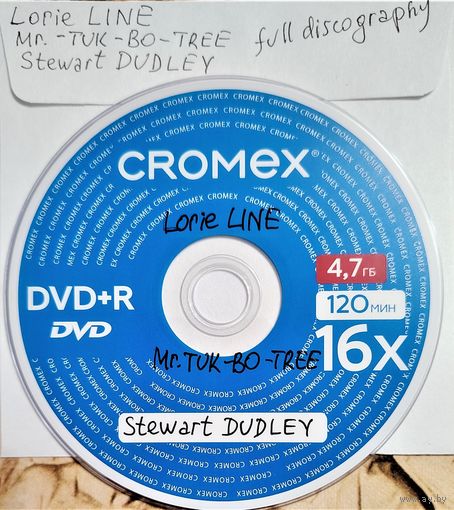 Lorie LINE
Mr.-TUK-BO-TREE full discography
Stewart DUDLEY
CROMEX®
Lorie LINE
4,7 ГБ
DVD+R 120 МИН
DVD
Mr.TUK-BO-TREE 16x
Stewart DUDLEY
www.ay.by